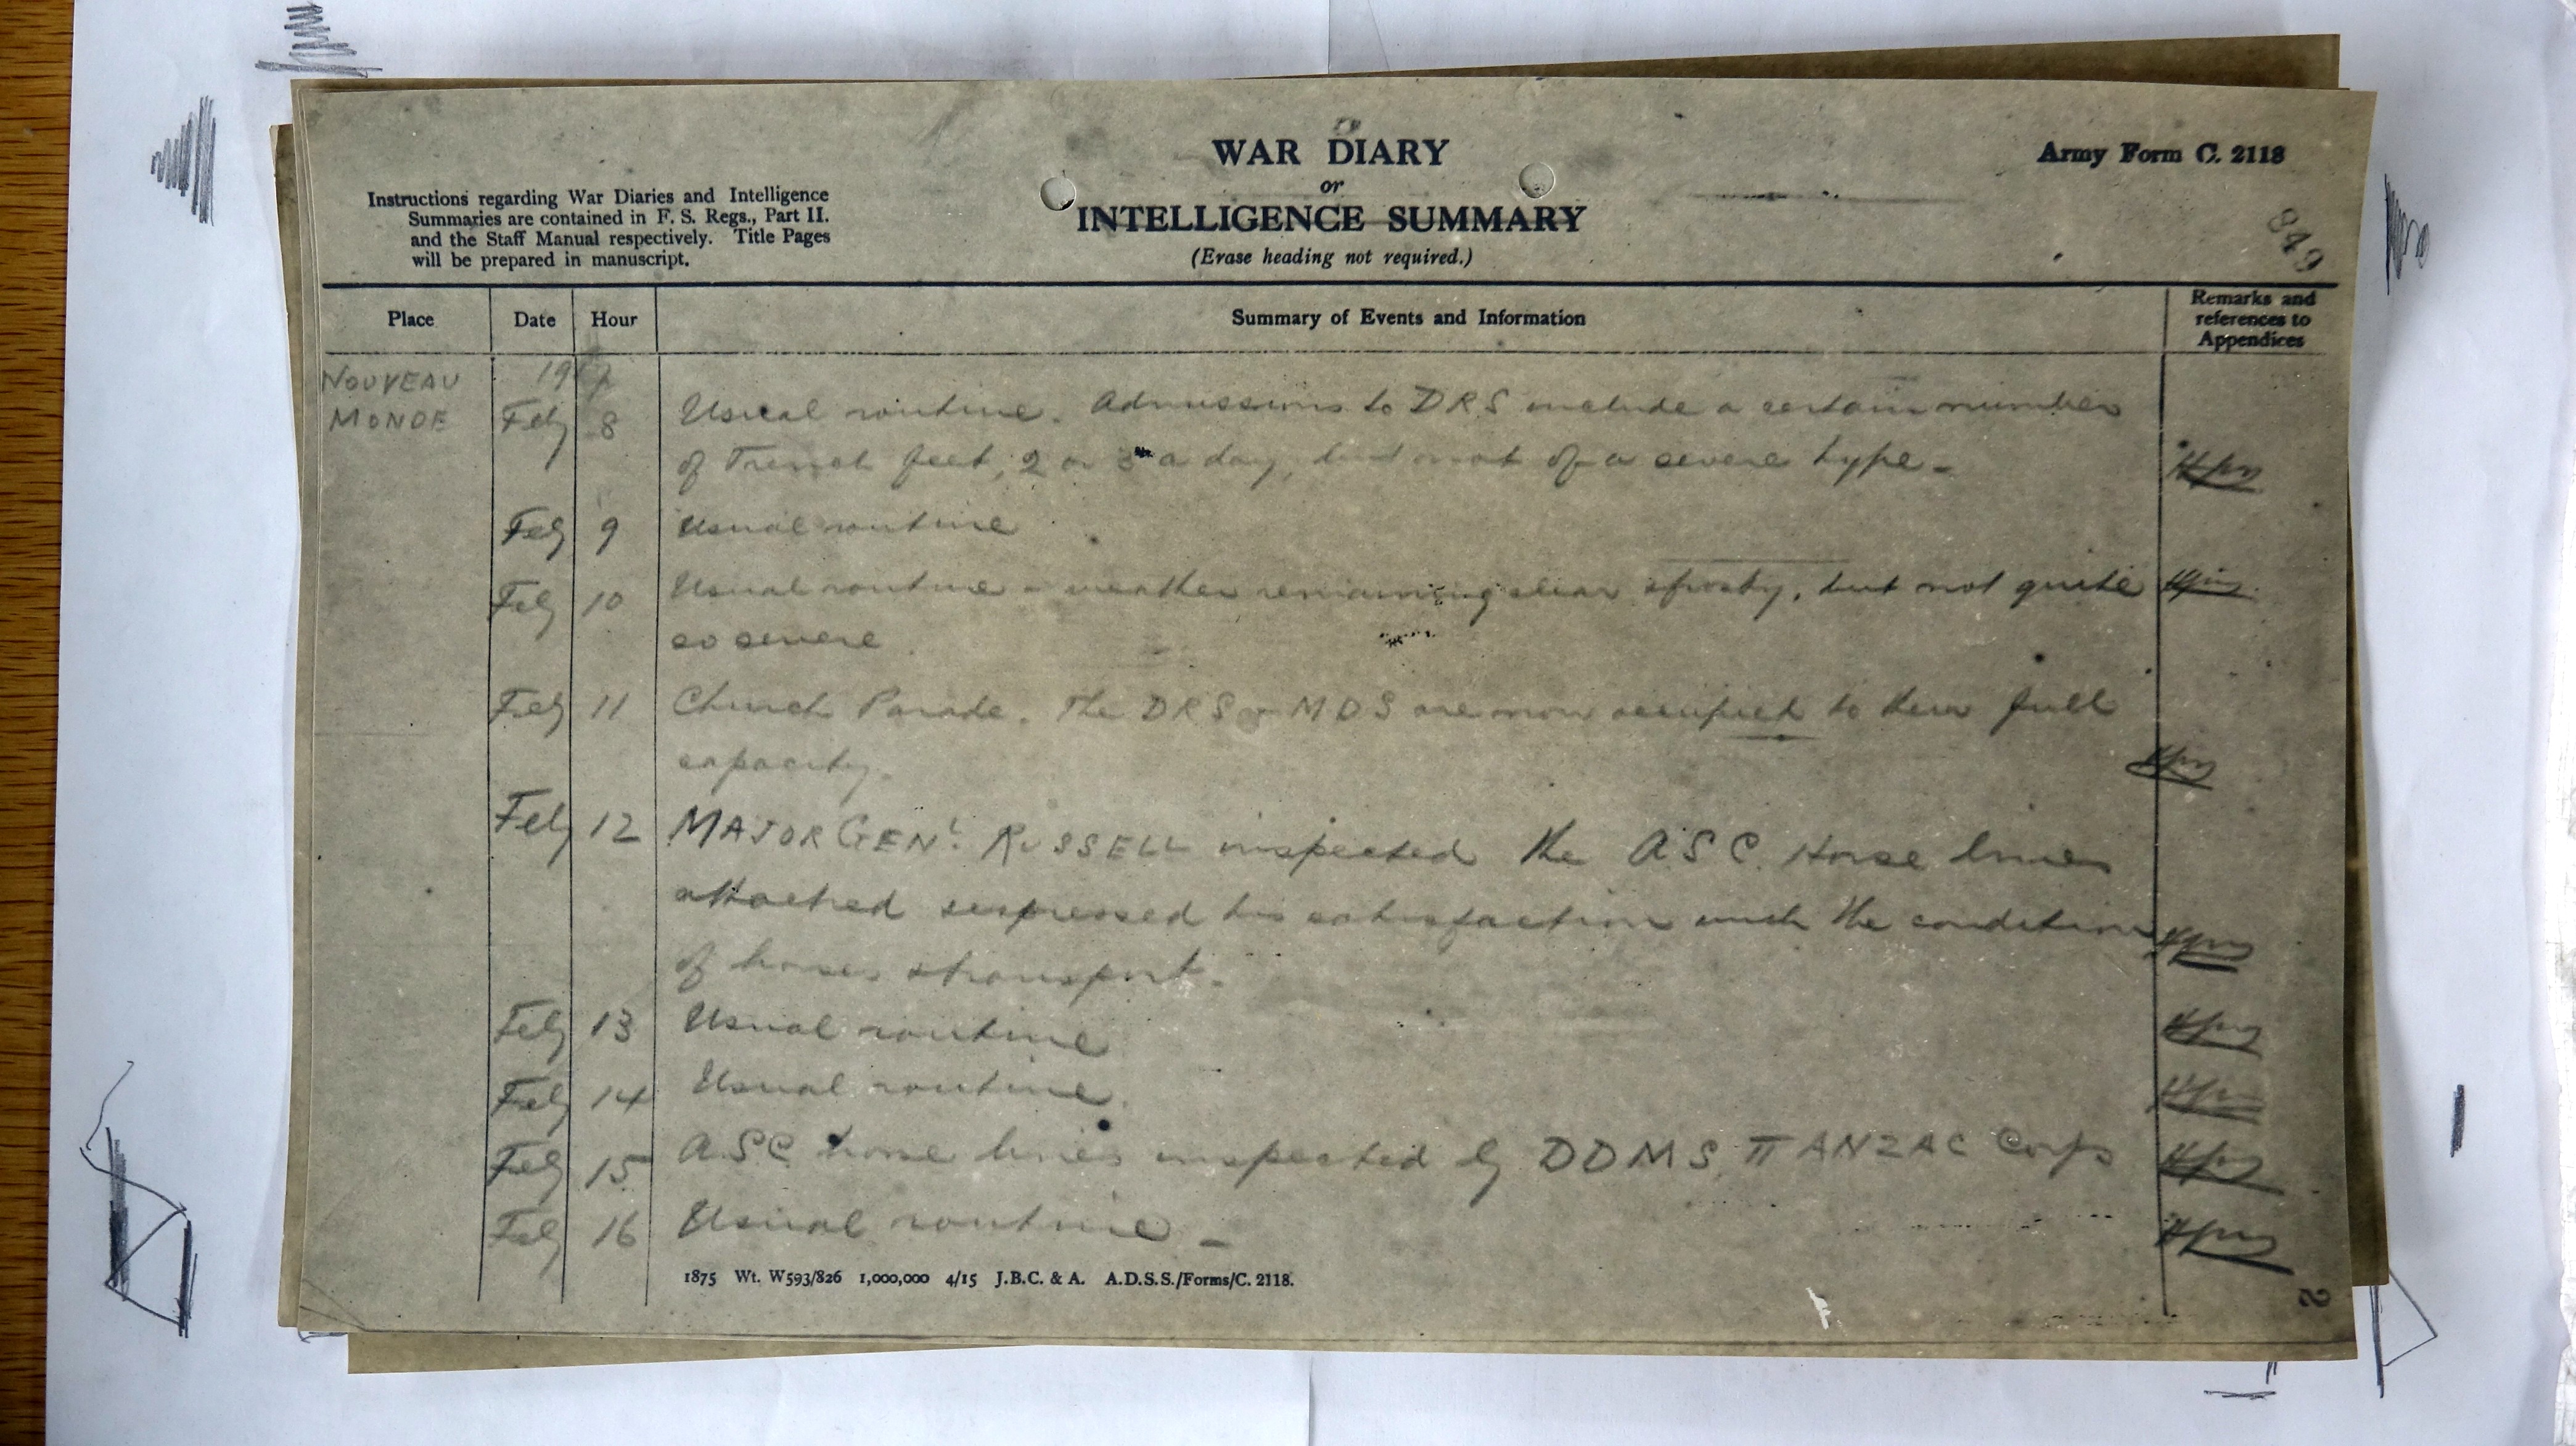 WAR DIARY
or
INTELLIGENCE SUMMARY
(Erase heading not required.)
Army Form C. 2118
849
Instructions regarding War Diaries and Intelligence
Summaries are contained in F. S. Regs., Part II.
and the Staff Manual respectively. Title Pages
will be prepared in manuscript.
Place Date Hour Summary of Events and Information Remarks and
references to
Appendices
NOUVEAU 1917
MONDE Feby 8 Usual routine. Admissions to DRS include a certain number
of Trench feet, 2 or 3 a day, but not of a severe type -
Feby 9 Usual routine
Feby 10 Usual routine - weather remaining clear & frosty, but not quite
so severe
Feby 11 Church Parade. The DRS & MDS are now occupied to their full
capacity.
Feby 12 MAJOR GENL. RUSSELL inspected the ASC Horse lines
attached & expressed his satisfaction with the condition
of horses & transport.
Feby 13 Usual routine
Feby 14 Usual routine.
Feby 15 ASC horse lines inspected by DDMS II ANZAC Corps
Feby 16 Usual routine -
1875 Wt. W593/826 1,000,000 4/15 J.B.C. & A. A.D.S.S./Forms/C. 2118.
2